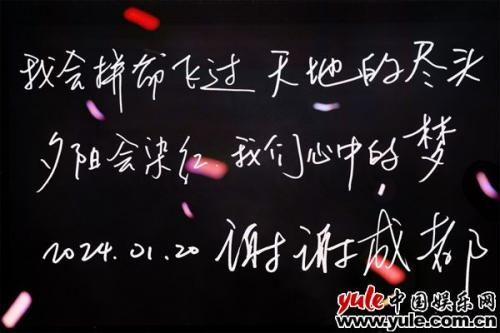 我会拼命飞过 天地的尽头
夕阳会染红 我们心中的梦
2024.01.20 谢谢成都
yule中国娱乐网
www.yule.com.cn